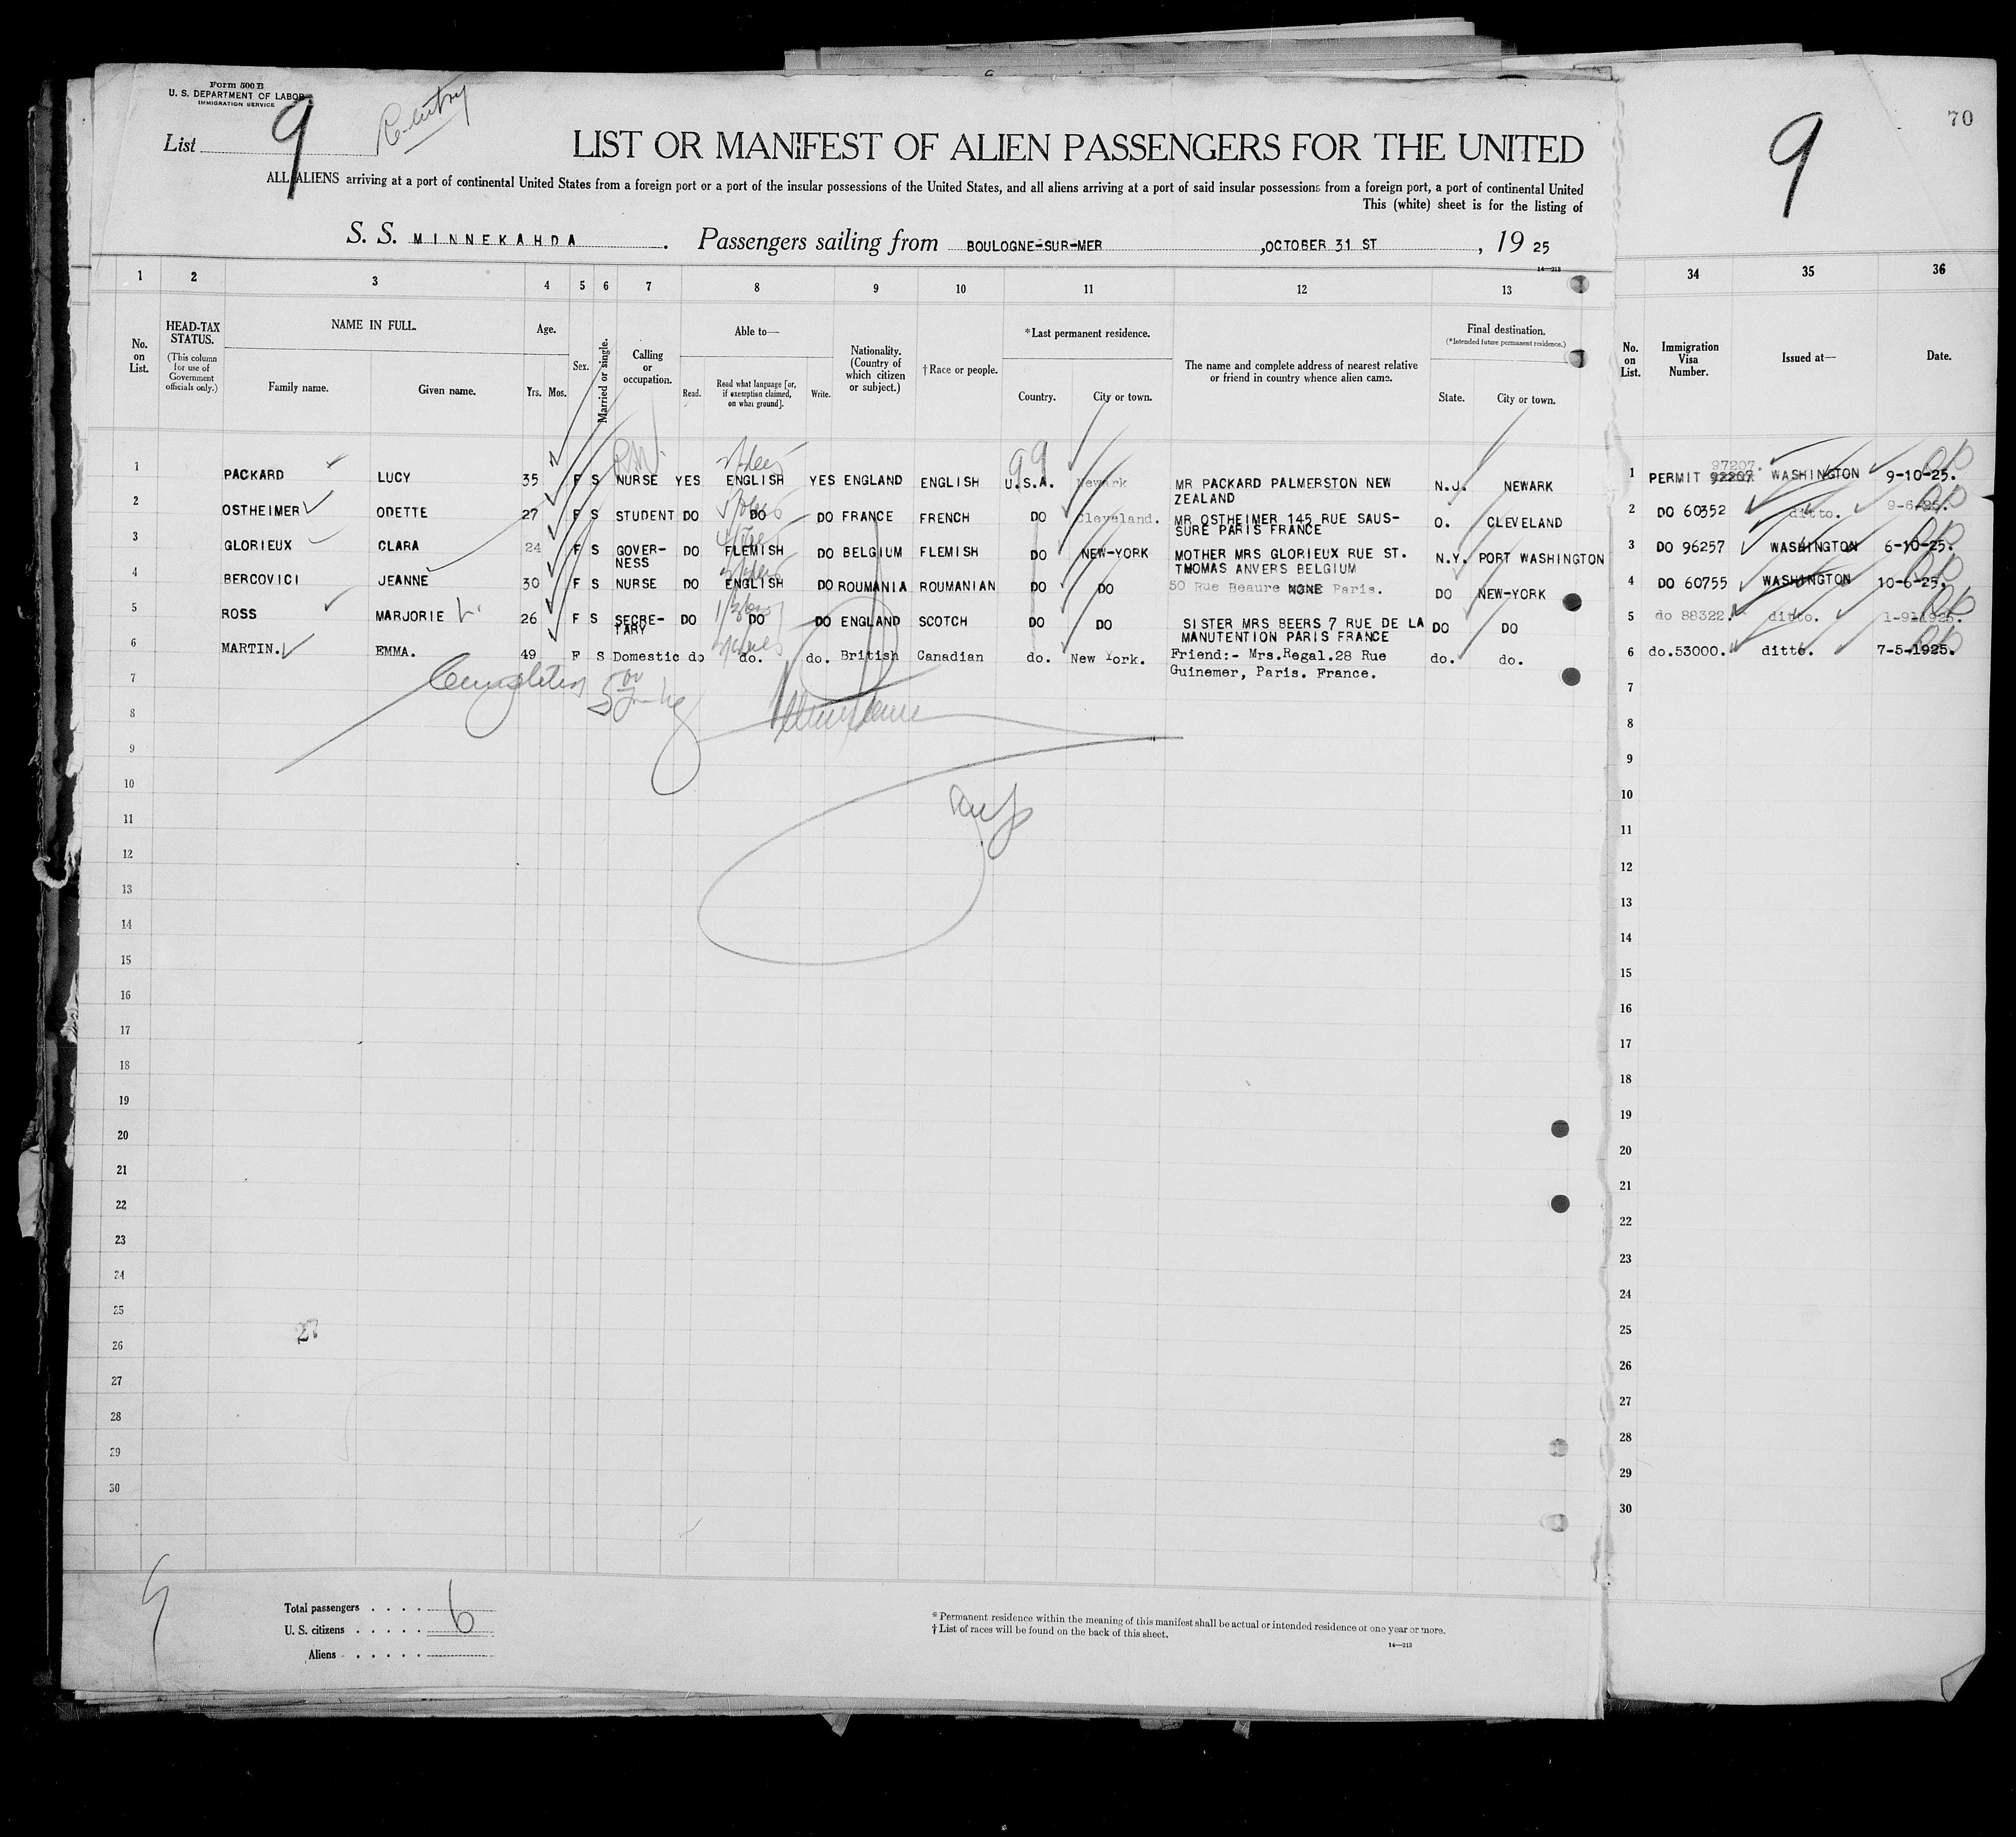 Form 500 B
U. S. DEPARTMENT OF LABOR
IMMIGRATION SERVICE
List 9
9
70
LIST OR MANIFEST OF ALIEN PASSENGERS FOR THE UNITED
ALL ALIENS arriving at a port of continental United States from a foreign port or a port of the insular possessions of the United States, and all aliens arriving at a port of said insular possessions from a foreign port, a port of continental United
This (white) sheet is for the listing of
S. S. MINNEKAHDA. Passengers sailing from BOULOGNE-SUR-MER ,OCTOBER 31 ST , 19 25
14—213
1 2 3 4 5 6 7 8 9 10 11 12 13 34 35 36
No. on List.
HEAD-TAX STATUS.
(This column for use of Government officials only.)
NAME IN FULL.
Family name. Given name.
Age.
Yrs. Mos.
Sex.
Married or single.
Calling or occupation.
Able to—
Read. Read what language [or, if exemption claimed, on what ground]. Write.
Nationality. (Country of which citizen or subject.)
†Race or people.
*Last permanent residence.
Country. City or town.
The name and complete address of nearest relative or friend in country whence alien came.
Final destination.
(*Intended future permanent residence.)
State. City or town.
No. on List.
Immigration Visa Number.
Issued at—
Date.
1 PACKARD LUCY 35 F S NURSE YES ENGLISH YES ENGLAND ENGLISH U.S.A. Newark MR PACKARD PALMERSTON NEW N.J. NEWARK 1 PERMIT 92207 97207. WASHINGTON 9-10-25.
ZEALAND
2 OSTHEIMER ODETTE 27 F S STUDENT DO DO DO FRANCE FRENCH DO Cleveland. MR OSTHEIMER 145 RUE SAUS- O. CLEVELAND 2 DO 60352 ditto. 9-6-25.
SURE PARIS FRANCE
3 GLORIEUX CLARA 24 F S GOVER- DO FLEMISH DO BELGIUM FLEMISH DO NEW-YORK MOTHER MRS GLORIEUX RUE ST. N.Y. PORT WASHINGTON 3 DO 96257 WASHINGTON 6-10-25.
NESS TMOMAS ANVERS BELGIUM
4 BERCOVICI JEANNE 30 F S NURSE DO ENGLISH DO ROUMANIA ROUMANIAN DO DO 50 Rue Beaure NONE Paris. DO NEW-YORK 4 DO 60755 WASHINGTON 10-6-25.
5 ROSS MARJORIE 26 F S SECRE- DO DO DO ENGLAND SCOTCH DO DO SISTER MRS BEERS 7 RUE DE LA DO DO 5 do 88322. ditto. 1-9-1925.
TARY MANUTENTION PARIS FRANCE
6 MARTIN. EMMA. 49 F S Domestic do do. do. British Canadian do. New York. Friend:- Mrs.Regal.28 Rue do. do. 6 do.53000. ditto. 7-5-1925.
Guinemer, Paris. France.
7 7
8 8
9 9
10 10
11 11
12 12
13 13
14 14
15 15
16 16
17 17
18 18
19 19
20 20
21 21
22 22
23 23
24 24
25 25
27
26 26
27 27
28 28
29 29
30 30
Total passengers . . . . 6
U. S. citizens . . . . .
Aliens . . . . .
*Permanent residence within the meaning of this manifest shall be actual or intended residence of one year or more.
†List of races will be found on the back of this sheet.
14—213